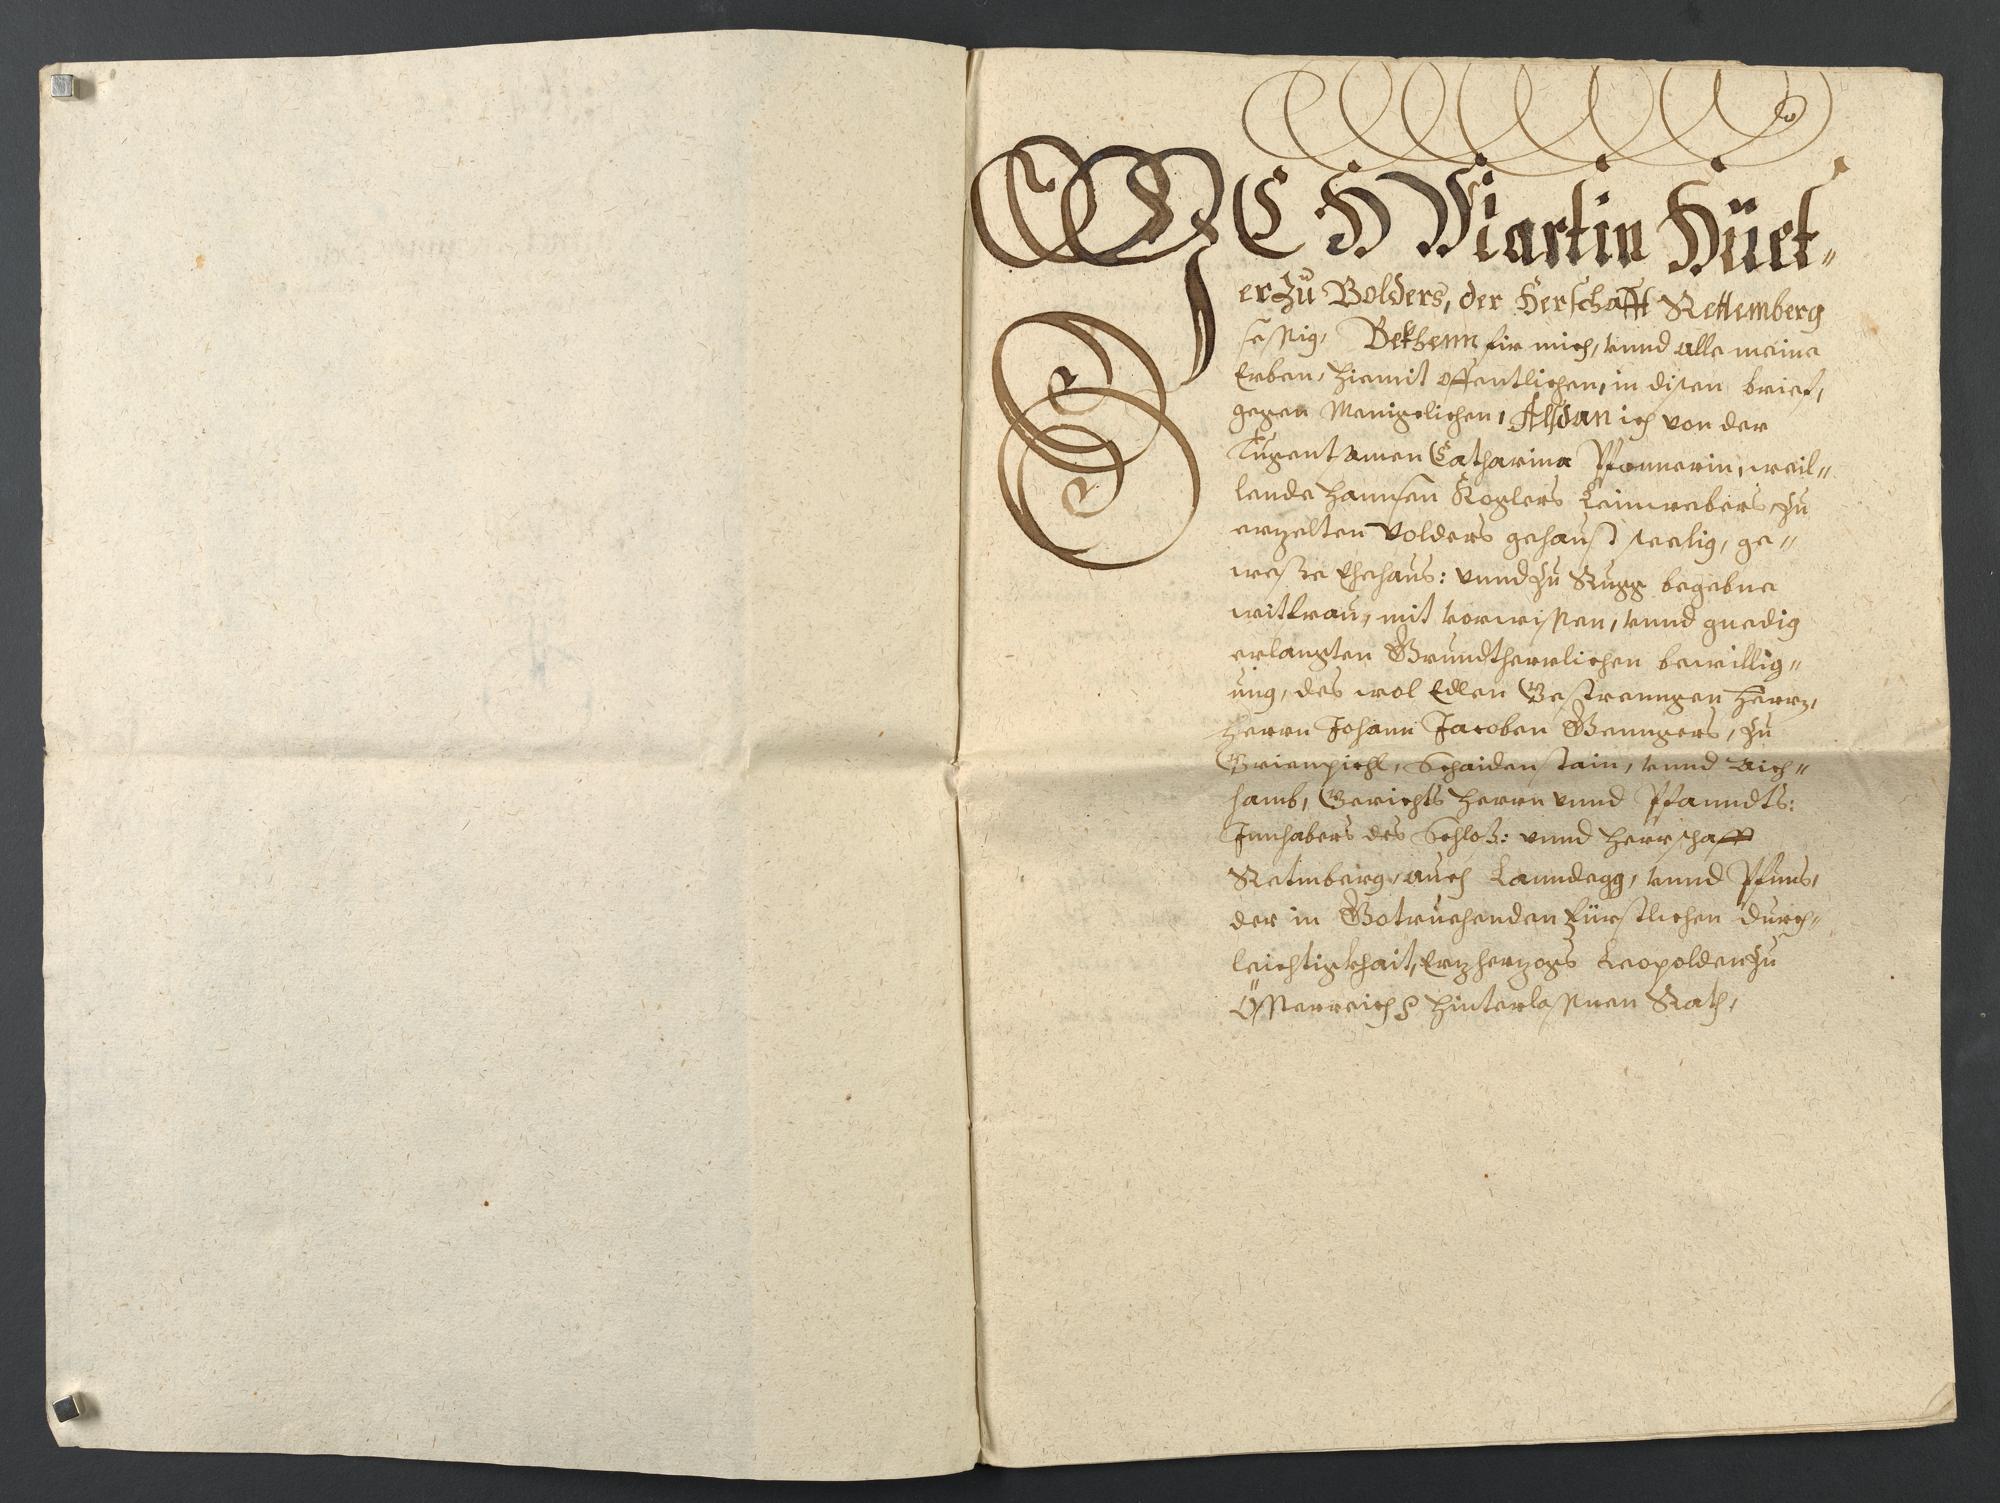 ICH Martin Hüet-
er zu Volders, der Herschafft Rettemberg
sessig, Bekhenn für mich, vnnd alle meine
Erben, hiemit offentlichen, in disen brief,
gegen Menigclichen, Alsdan ich von der
Tugentsamen Catharina Pfannerin, weil-
lende Hannsen Koglers Leinwebers zu
erzelten Volders gehaust seelig, ge-
weßte Ehehaus: vnnd zu Rugg begebne
witfrau, mit vorwissen, vnnd gnedig
erlangten Grundtherrlichen bewillig-
ung, des wol Edlen Gestrenngen Herrn,
Herrn Johann Jacoben Genngers, zu
Grienpichl, Schaidenstain, vnnd Aich-
hamb, Gerichts Herrn vnnd Pfanndts:
Innhabers des Schloß: vnnd Herrschafft
Retinberg, auch Lanndegg, vnnd Pfuns,
der in Gotruehenden fürstlichen durch-
leichtigkhait, Erzherzogs Leopolden zu
Össterreich hinterlassnen Rath,